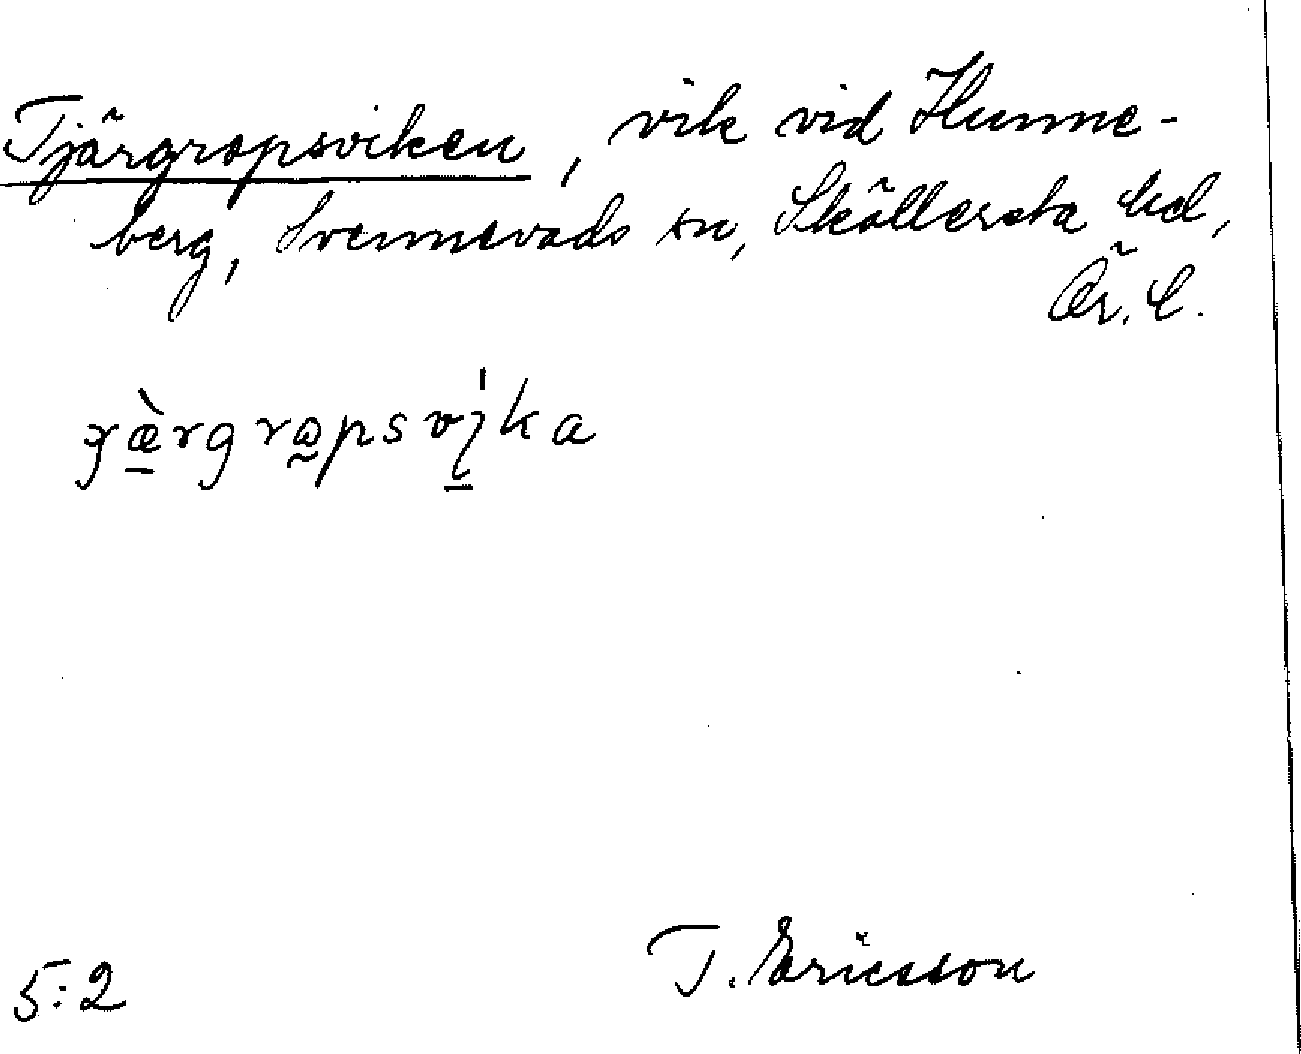 Tjärgropsviken, vik vid Hunne-
berg, Svennevads sn, Sköllersta hd,
Ör. l.
5:2 T. Ericsson